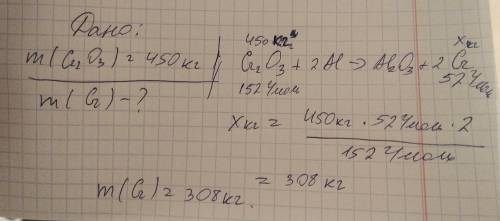 Дано:
m(Cr₂O₃) = 450 кг
m(Cr) - ?
450 кг x кг
Cr₂O₃ + 2Al → Al₂O₃ + 2Cr
152 г/моль 52 г/моль
x кг = 450 кг · 52 г/моль · 2
152 г/моль
= 308 кг
m(Cr) = 308 кг.